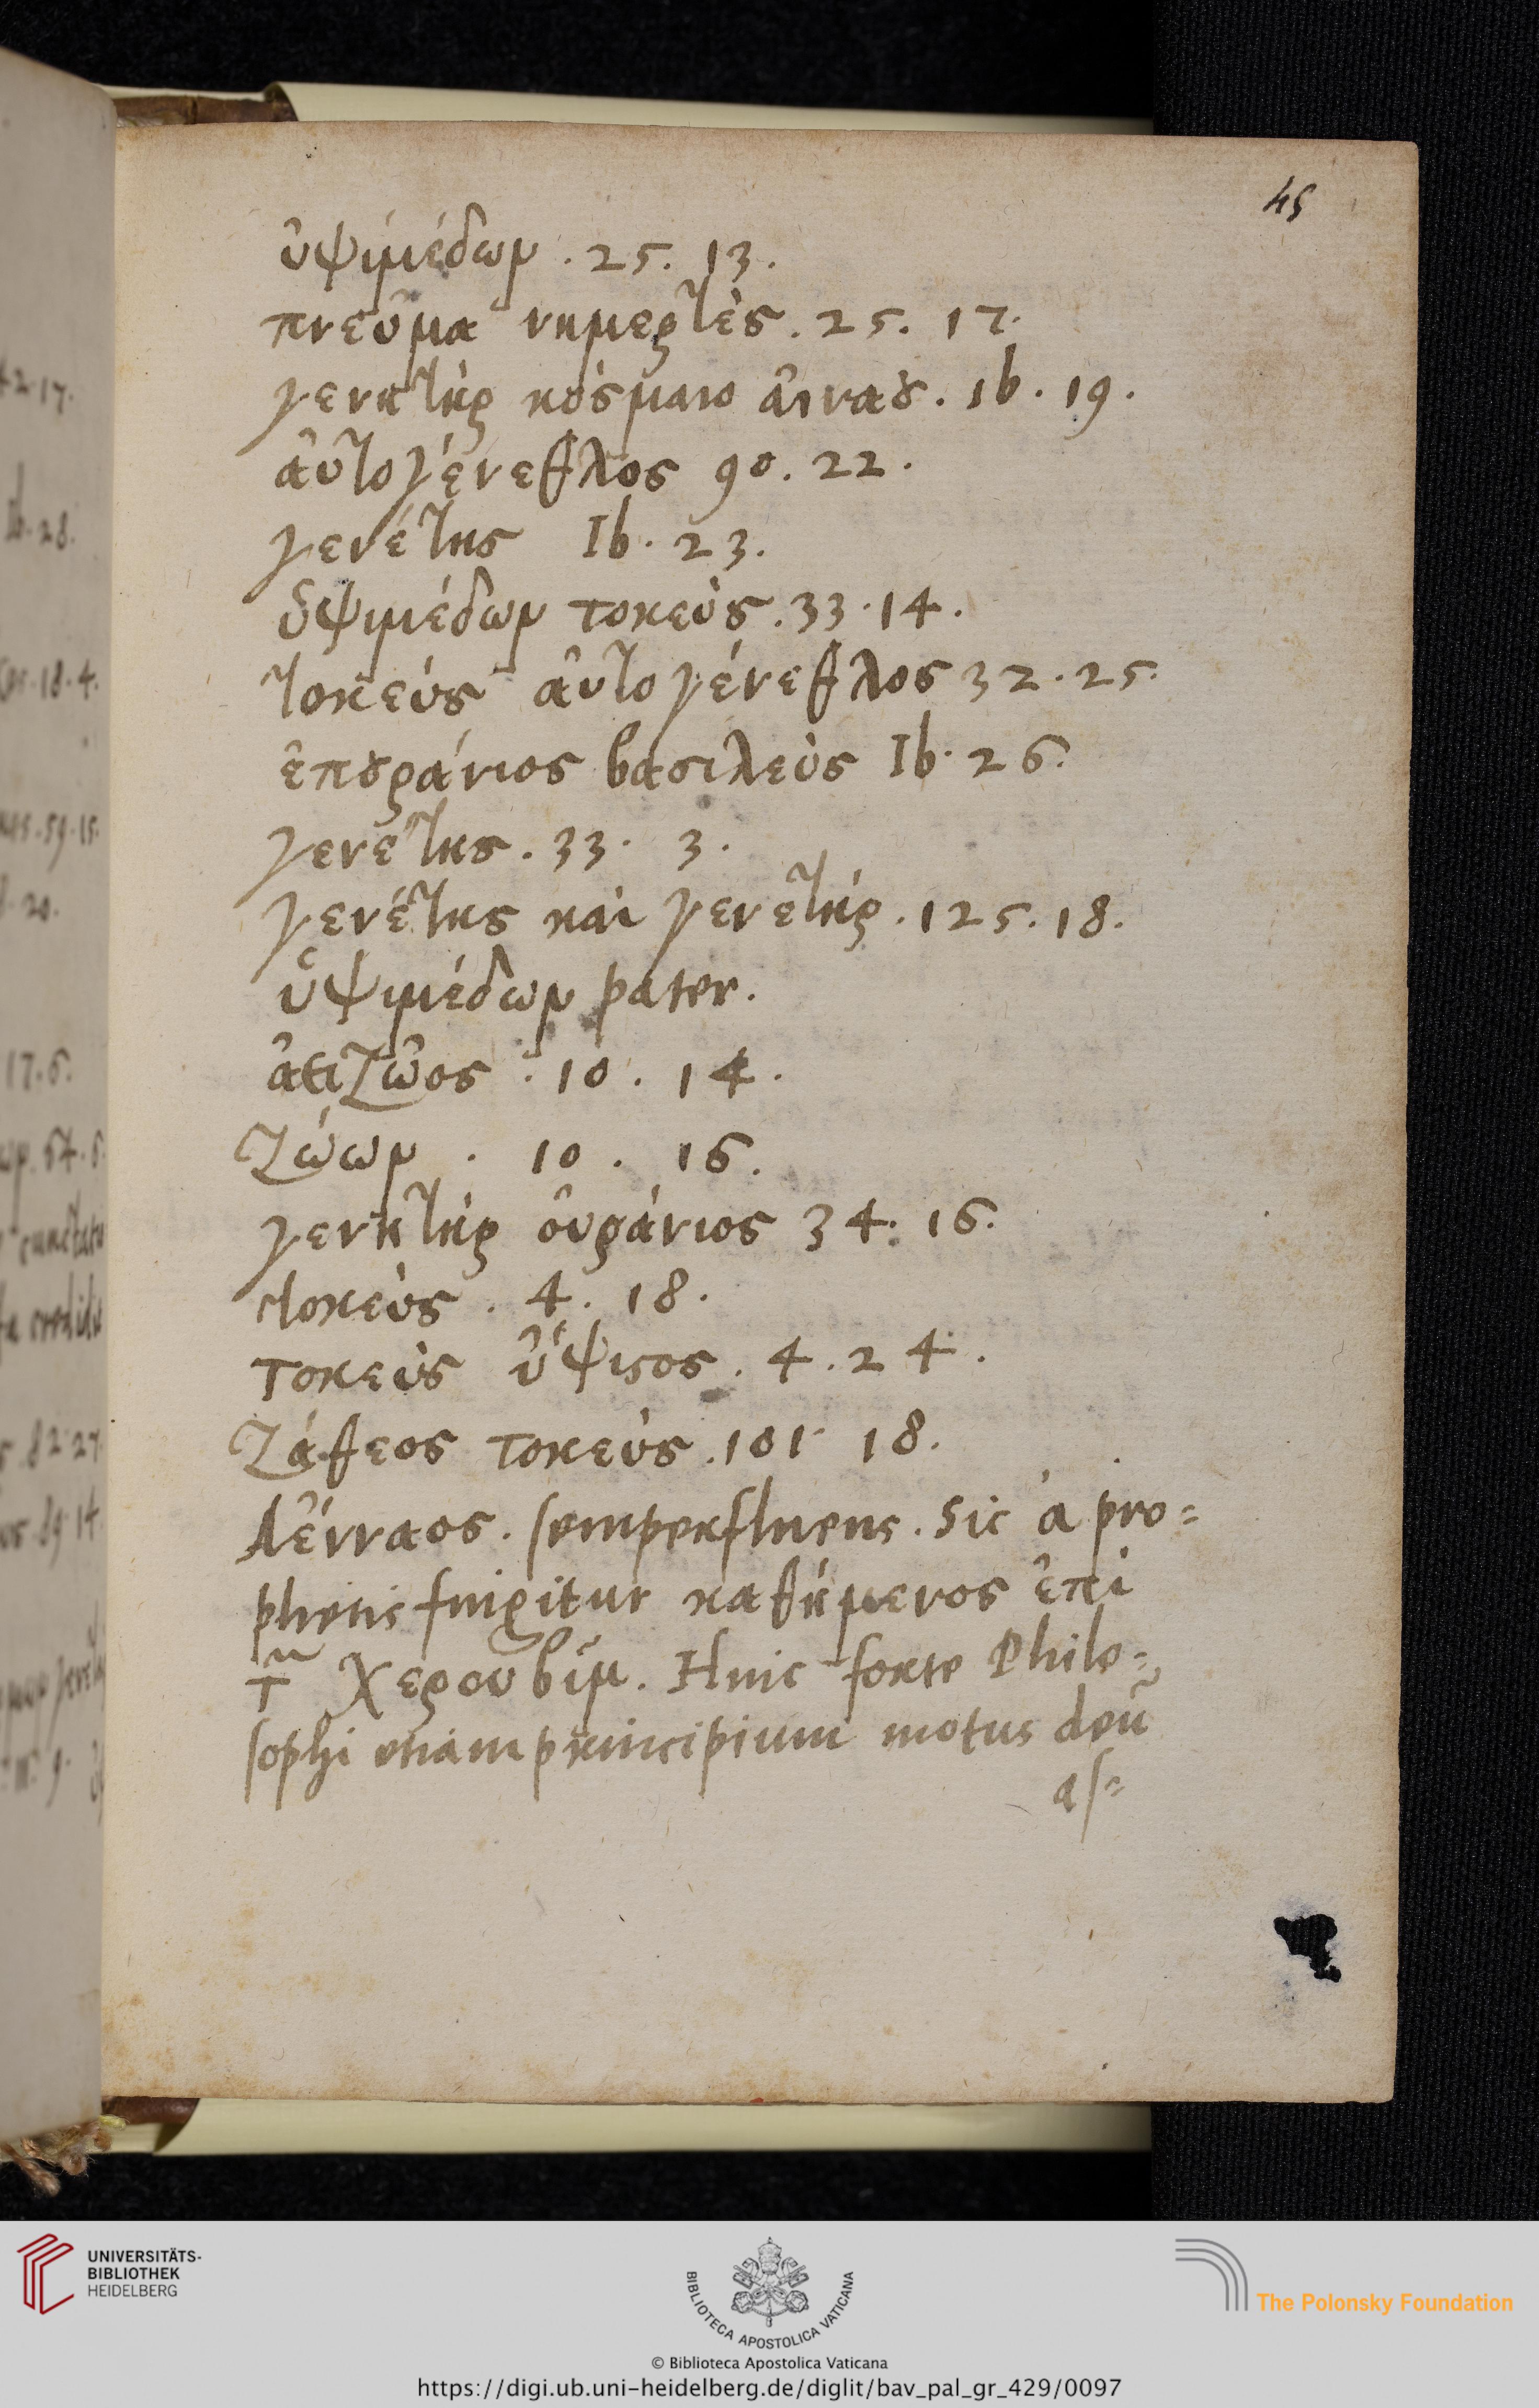 45
ὑψιμέδων . 25. 13.
πνεῦμα νημερτὲς . 25. 17.
γενητὴρ κόσμοιο ἀϊναȣ . ib . 19.
αὐτογένεθλος 90. 22.
γενέτης Ib. 23.
ὑψιμέδων τοκεὺς . 33. 14.
τοκεύς αὐτογένεθλος 32. 25.
ἐπȣράνιος βασιλεὺς Ib. 26.
γενέτης . 33. 3.
γενέτης καὶ γενετήρ . 125. 18.
ὑψιμέδων pater.
ἀειζῶος . 10 . 14.
Ζώων . 10 . 16.
γενητὴρ οὐράνιος 34. 16.
τοκεὺς . 4. 18.
τοκεὺς ὕψιϛος . 4. 24.
Ζάθεος τοκεύς . 101. 18.
Ἀένναος . semperfluens. Sic a pro=
phetis fingitur καθήμενος ἐπὶ
Χερουβίμ . Huic forte Philo=
sophi etiam principium motus deū
as=
UNIVERSITÄTS-
BIBLIOTHEK
HEIDELBERG
BIBLIOTECA APOSTOLICA VATICANA
The Polonsky Foundation
© Biblioteca Apostolica Vaticana
https://digi.ub.uni-heidelberg.de/diglit/bav_pal_gr_429/0097